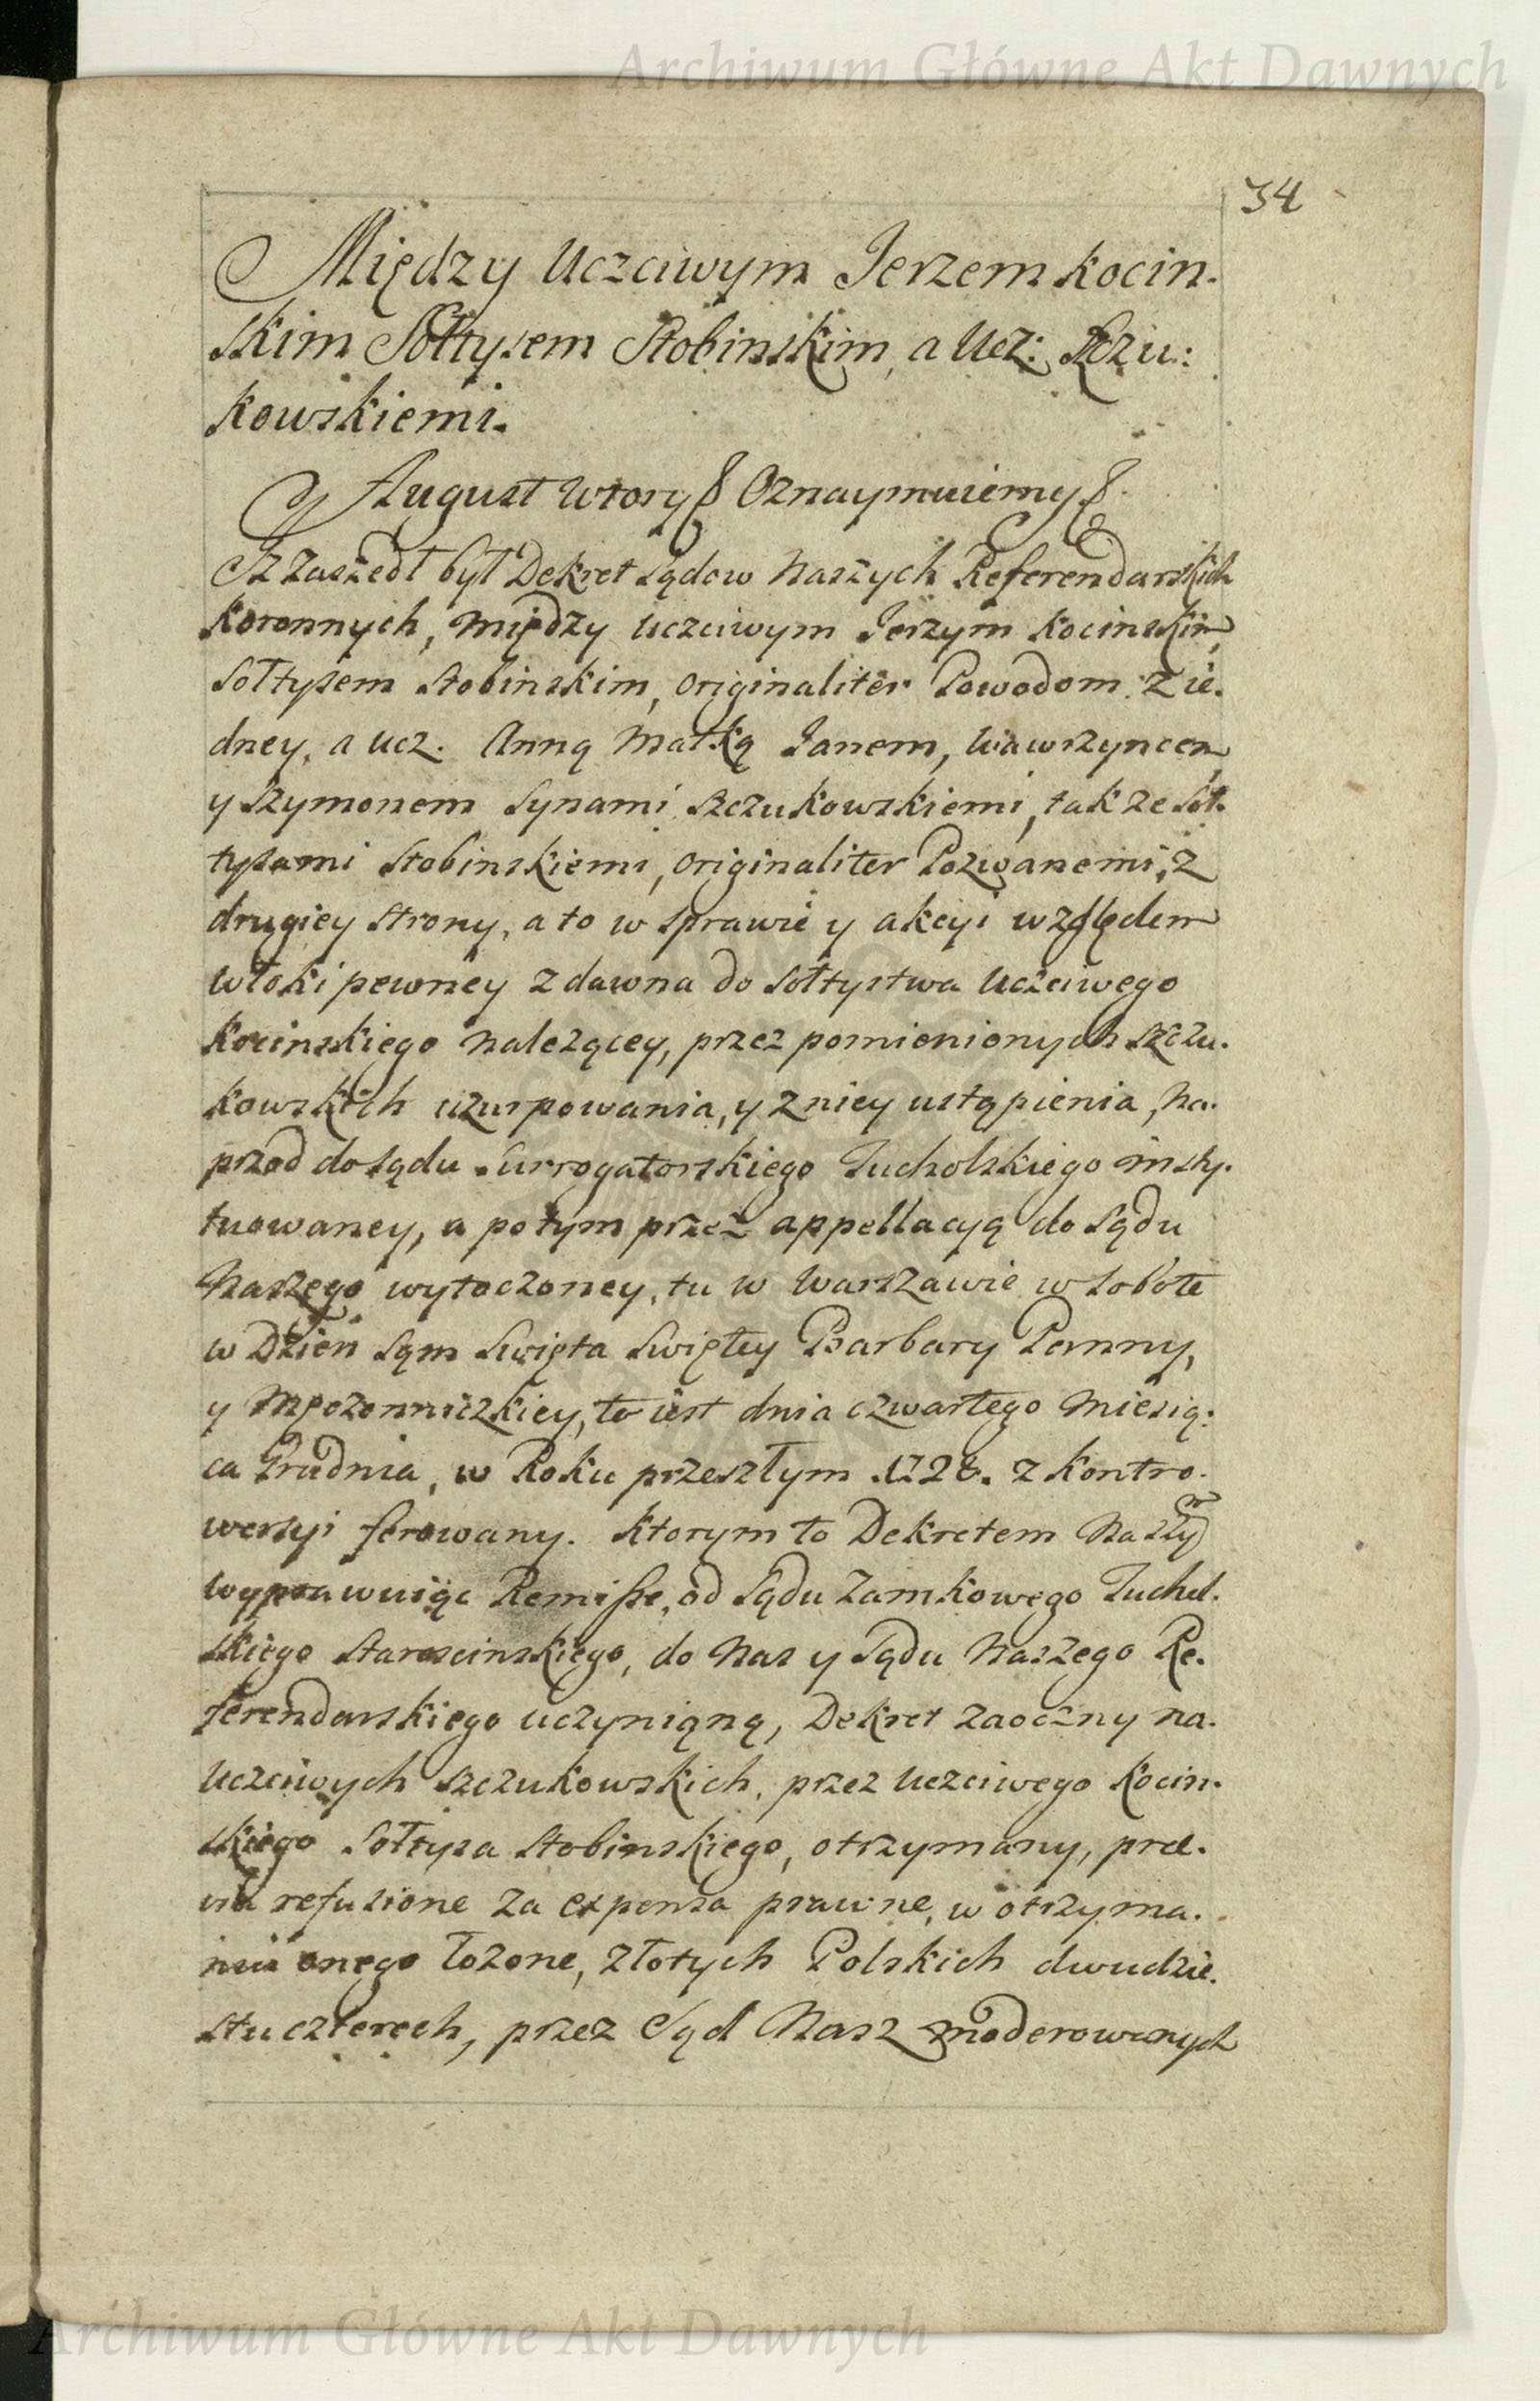 Archiwum Główne Akt Dawnych
34
Między Uczciwym Jerzem Kocin-
skim Sołtysem Stobinskim, a Ucz: Szczu:
kowskiemi.
August Wtory Oznaymuiemy
Iz zaszedł był Dekret Sądow Naszych Referendarskich
Koronnych, między Uczciwym Jerzym Kocinskim,
Sołtysem Stobinskim, originaliter Powodom z ie-
dney, a Ucz. Anną Matką Janem, Wawrzyncem
y Szymonem Synami Szczukowskiemi, takze Soł-
tysami Stobinskiemi, originaliter Pozwanemi, z
drugiey strony, a to w sprawie y akcyi względem
włoki pewney z dawna do Sołtystwa Uczciwego
Kocinskiego nalezącey, przez pomienionych Szczu-
kowskich uzurpowania, y z niey ustąpienia, na-
przod do Sądu Surrogatorskiego Tucholskiego insty-
tuowaney, a potym przez appellacyą do Sądu
Naszego wytoczoney, tu w Warszawie w Sobotę
w Dzien sąm Swięta Swiętey Barbary Panny,
y Męczenniczkiey, to iest dnia czwartego Miesią:
ca Grudnia, w Roku przeszłym 1728. z kontro-
wersyi ferowany. Ktorym to Dekretem Naszym
wyprawuiąc Remissę, od Sądu Zamkowego Tuchol-
skiego Staroscinskiego, do Nas y Sądu Naszego Re-
ferendarskiego uczynioną, Dekret zaoczny na-
Uczciwych Szczukowskich, przez Uczciwego Kocin-
skiego Sołtysa Stobinskiego, otrzymany, præ-
via refusione za expensa prawne, w otrzyma-
niu onego łozone, złotych Polskich dwudzie-
stu czterech, przez Sąd Nasz moderowanych
Archiwum Główne Akt Dawnych